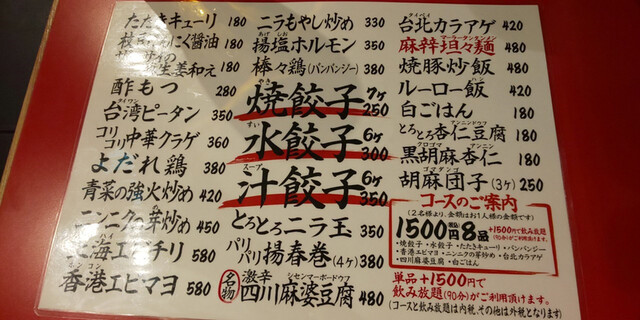 たたきキューリ 180
枝豆にんにく醤油 180
生姜和え 380
酢もつ 280
台湾ピータン 350
タイワン
コリコリ中華クラゲ 360
よだれ鶏 380
青菜の強火炒め 420
ニンニクの芽炒め 450
上海エビチリ 580
香港エビマヨ 580
ニラもやし炒め 330
揚塩ホルモン 350
あげ しお
棒々鶏(バンバンジー) 380
焼餃子 7ヶ 250
やき
水餃子 6ヶ 300
すい
汁餃子 6ヶ 350
スープ
とろとろニラ玉 350
パリパリ揚春巻(4ヶ) 380
名物 激辛 四川麻婆豆腐 480
シセンマーボードウフ
台北カラアゲ 420
タイペイ
麻辣坦々麺 480
マーラータンタンメン
焼豚炒飯 480
ルーロー飯 420
白ごはん 180
とろとろ杏仁豆腐 380
アンニンドウフ
黒胡麻杏仁 380
クロゴマ アンニン
胡麻団子(3ヶ) 250
ゴマダンゴ
コースのご案内
(2名様より、金額はお1人様の金額です)
1500円 税込 8品 +1500円で飲み放題
(90分)がご利用頂けます。
・焼餃子・水餃子・たたきキューリ・バンバンジー
・香港エビマヨ・ニンニクの芽炒め・台北カラアゲ
・四川麻婆豆腐・白ごはん
単品+1500円で
飲み放題(90分)がご利用頂けます。
(コースと飲み放題は内税、その他は外税となります)